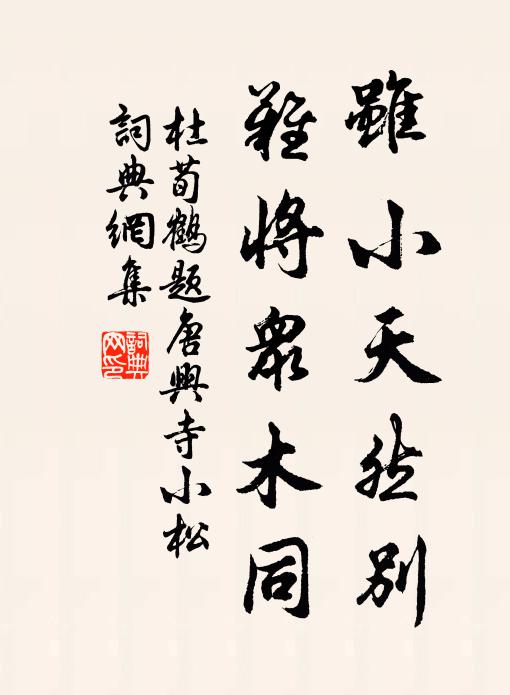 雖小天然別
難將眾木同
杜荀鶴題唐興寺小松
詞典網集
詞典網印